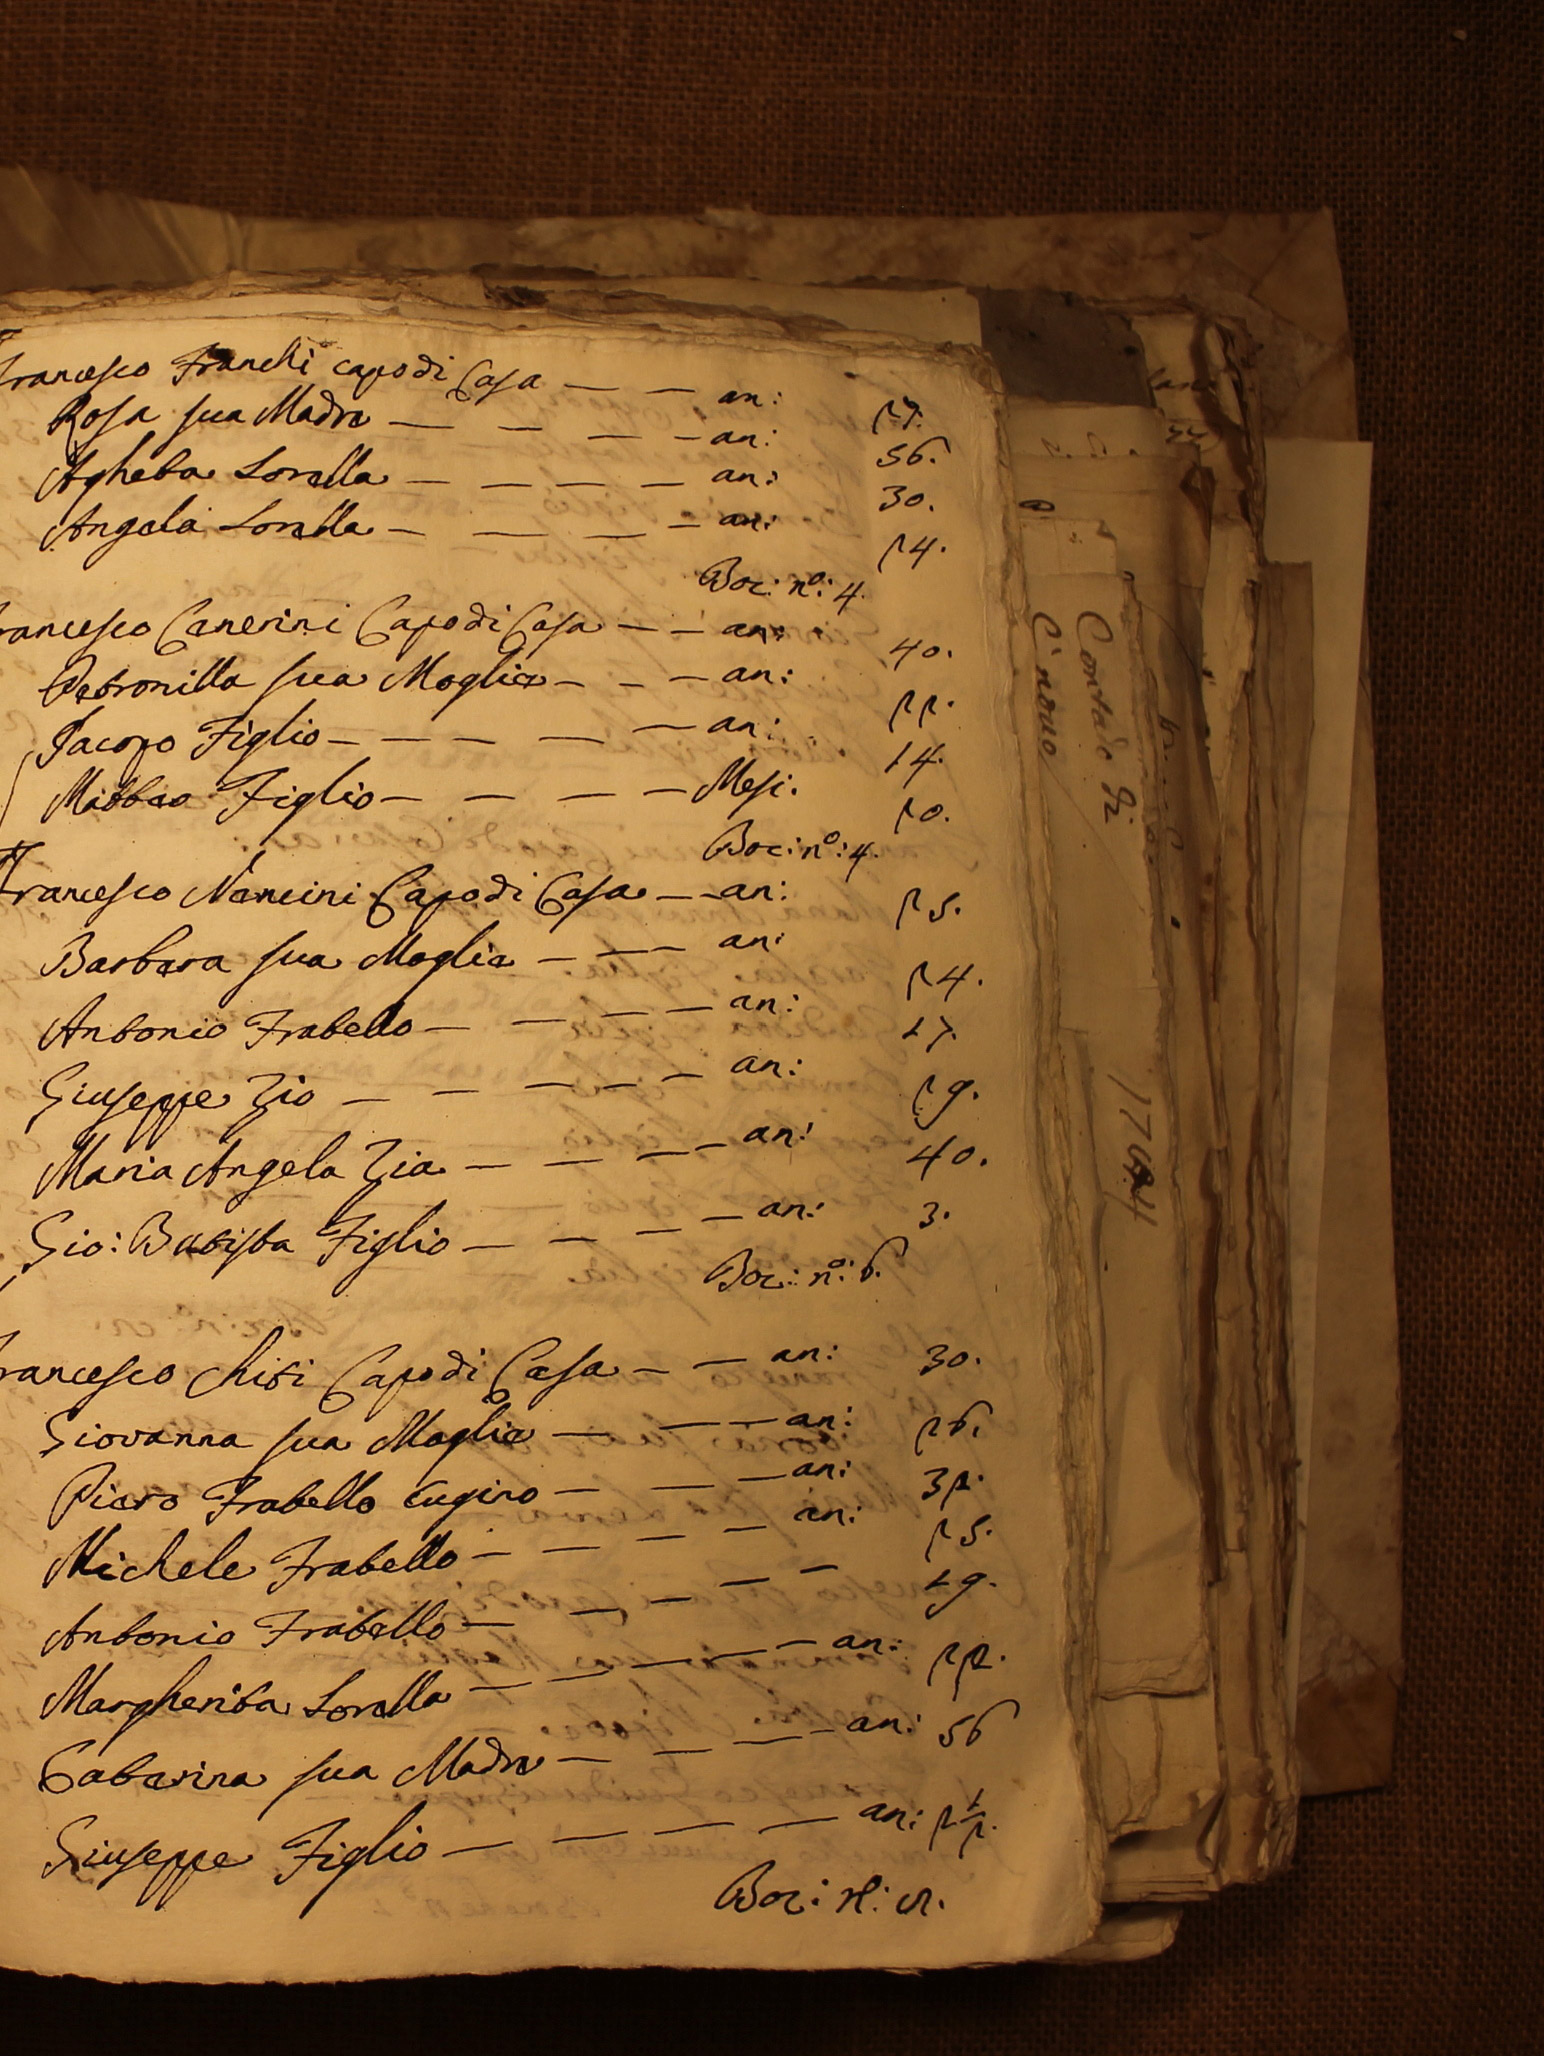 Francesco Franchi capo di Casa — — an: 27.
Rosa sua Madre — — — — an: 56.
Agheta Sorella — — — — an: 30.
Angela Sorella — — — — an: 24.
Boc: nº: 4.
Francesco Canerini Capo di Casa — — an: 40.
Petronilla sua Moglie — — — an: 22.
Jacopo Figlio — — — — — an: 14.
Matteo Figlio — — — — Mesi. 20.
Boc: nº: 4.
Francesco Nencini Capo di Casa — — an: 25.
Barbera sua Moglie — — — an: 24.
Antonio Fratello — — — — an: 17.
Giuseppe Zio — — — — — an: 29.
Maria Angela Zia — — — — an: 40.
Gio: Batista Figlio — — — — an: 3.
Boc: nº: 6.
Francesco Chiti Capo di Casa — — an: 30.
Giovanna sua Moglie — — — an: 26.
Piero Fratello Cugino — — — an: 32.
Michele Fratello — — — — an: 25.
Antonio Fratello — — — — 19.
Margherita Sorella — — — — — an: 22.
Caterina sua Madre — — — — an: 56
Giuseppe Figlio — — — — — an: 2 1/2.
Boc: N: 8.
Contado di
1764